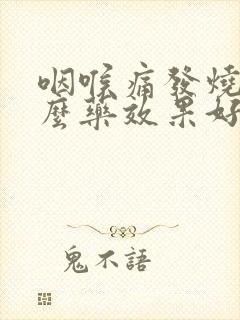 咽喉痛發燒
麼藥效果好
鬼不語